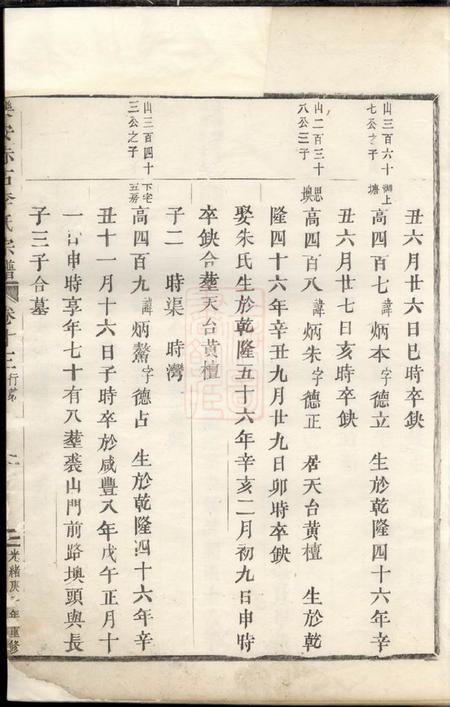 丑六月廿六日巳時卒缺
山三百六十
七公之子
湖上
塘
高四百七諱炳本字德立 生於乾隆四十六年辛
丑六月廿七日亥時卒缺
山二百三十
八公三子
思
墺
高四百八諱炳朱字德正 居天台黄檀 生於乾
隆四十六年辛丑九月廿九日卯時卒缺
娶朱氏生於乾隆五十六年辛亥二月初九日申時
卒缺合塟天台黄檀
子二 時渠 時灣
山三百四十
三公之子
下宅
五房
高四百九諱炳鰲字德占 生於乾隆四十六年辛
丑十一月十六日子時卒於咸豐八年戊午正月十
一日申時享年七十有八塟裘山門前路墺頭與長
子三子合墓
氏宗譜 卷十三 行第
光緒庚 年重修